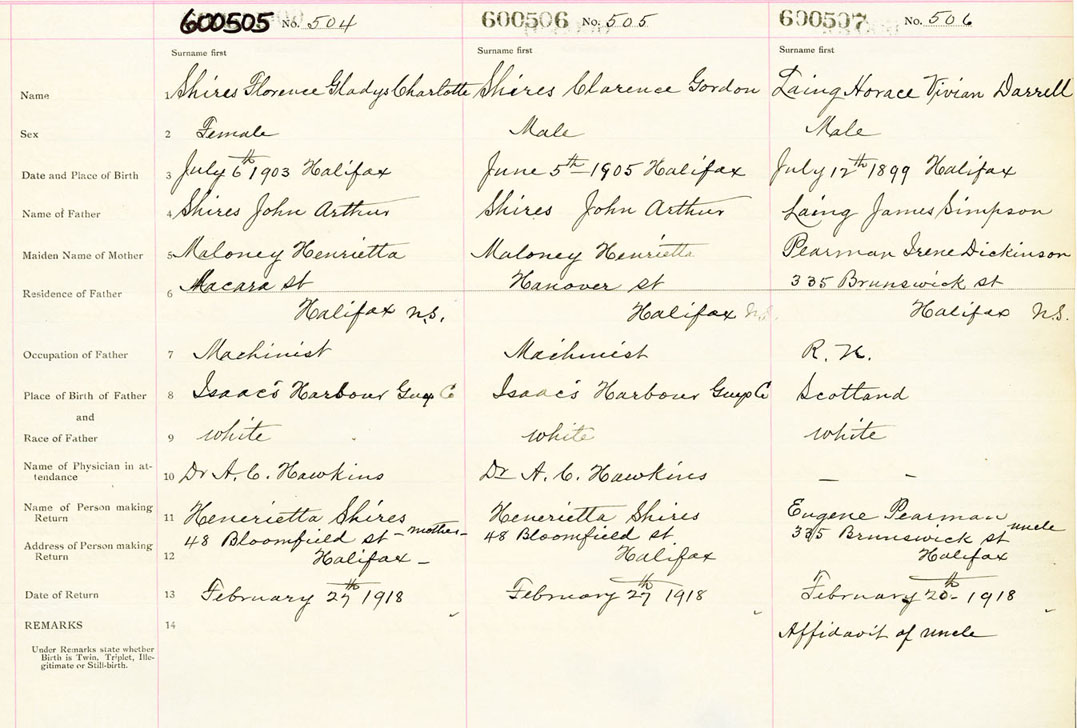 600505 No. 504 600506 No. 505 600507 No. 506
Surname first Surname first Surname first
Name 1 Shires Florence Gladys Charlotte Shires Clarence Gordon Laing Horace Vivian Darrell
Sex 2 Female Male Male
Date and Place of Birth 3 July 6th 1903 Halifax June 5th 1905 Halifax July 12th 1899 Halifax
Name of Father 4 Shires John Arthur Shires John Arthur Laing James Simpson
Maiden Name of Mother 5 Maloney Henrietta Maloney Henrietta Pearman Irene Dickinson
Residence of Father 6 Macara St Hanover St 335 Brunswick St
Halifax N.S. Halifax N.S. Halifax N.S.
Occupation of Father 7 Machinist Machinist R. N.
Place of Birth of Father 8 Isaac's Harbour Guy Co Isaac's Harbour Guy Co Scotland
and
Race of Father 9 white white white
Name of Physician in at-
tendance 10 Dr A. C. Hawkins Dr A. C. Hawkins — —
Name of Person making
Return 11 Henerietta Shires Henerietta Shires Eugene Pearman uncle
48 Bloomfield St - mother - 48 Bloomfield St 335 Brunswick St
Address of Person making
Return 12 Halifax - Halifax Halifax
Date of Return 13 February 27th 1918 February 27th 1918 February 20th 1918
REMARKS 14 Affidavit of uncle
Under Remarks state whether
Birth is Twin, Triplet, Ille-
gitimate or Still-birth.